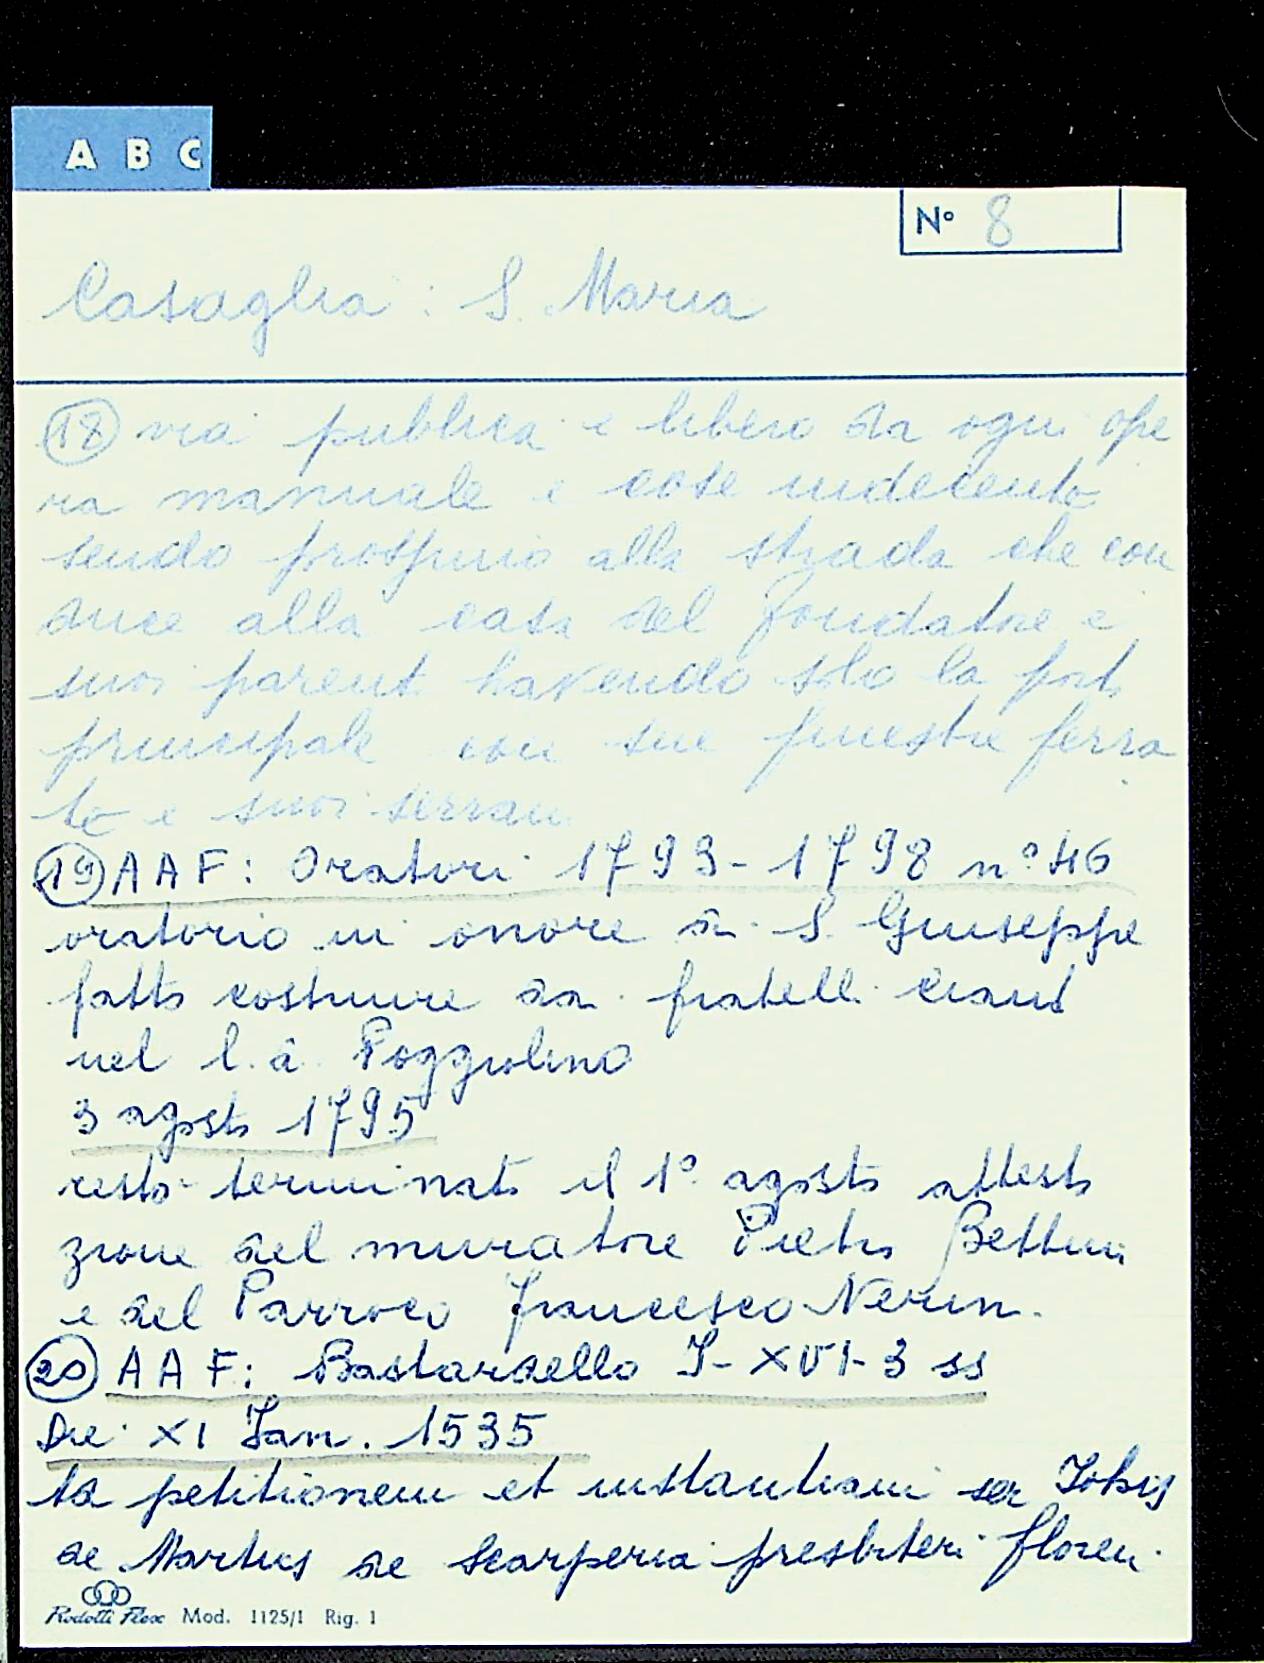 A B C
N° 8
Casaglia : S. Maria
(18) via publica e libero da ogni ope
ra manuale e cose indecente
sendo prossimo alla strada che con
duce alla casa del fondatore e
suoi parenti havendo solo la porta
principale con sue finestre ferra
te e suoi serrami
(19) AAF: Oratori 1793-1798 n° 46
oratorio in onore di S. Giuseppe
fatto costruire da fratelli
nel l. d. Poggiolino
3 agosto 1795
resto terminato il 1° agosto attesta
zione del muratore Pietro Bettini
e del Parroco Francesco Nerini.
(20) AAF: Bastardello I-XVI-3 ss
Die XI Jan. 1535
ta petitionem et instantiam ser Johis
de Martiis de Scarperia presbiteri floren.
Rodotti Flex Mod. 1125/1 Rig. 1